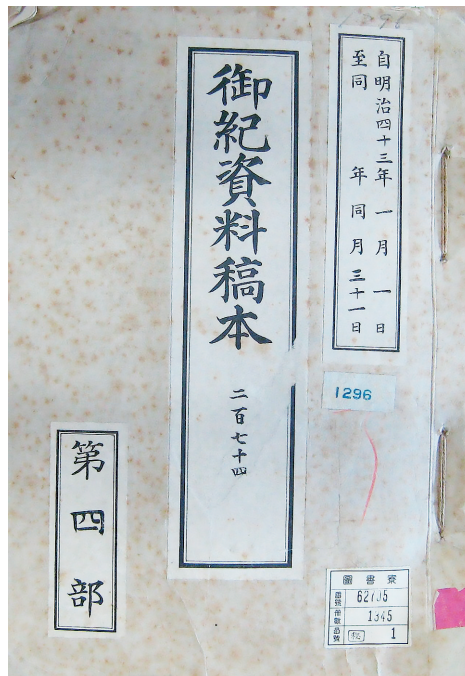 自明治四十三年一月一日
至同年同月三十一日
御紀資料稿本
二百七十四
1296
第四部
圖書寮
番號
冊數 1345
函號 秘 1